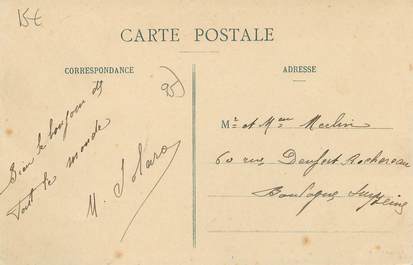 15€
CARTE POSTALE
CORRESPONDANCE
ADRESSE
95
Bien le bonjour de
tout le monde
M. Solaro
Mr et Mme Merlin
60 rue Denfert Rochereau
Boulogne sur
Seine